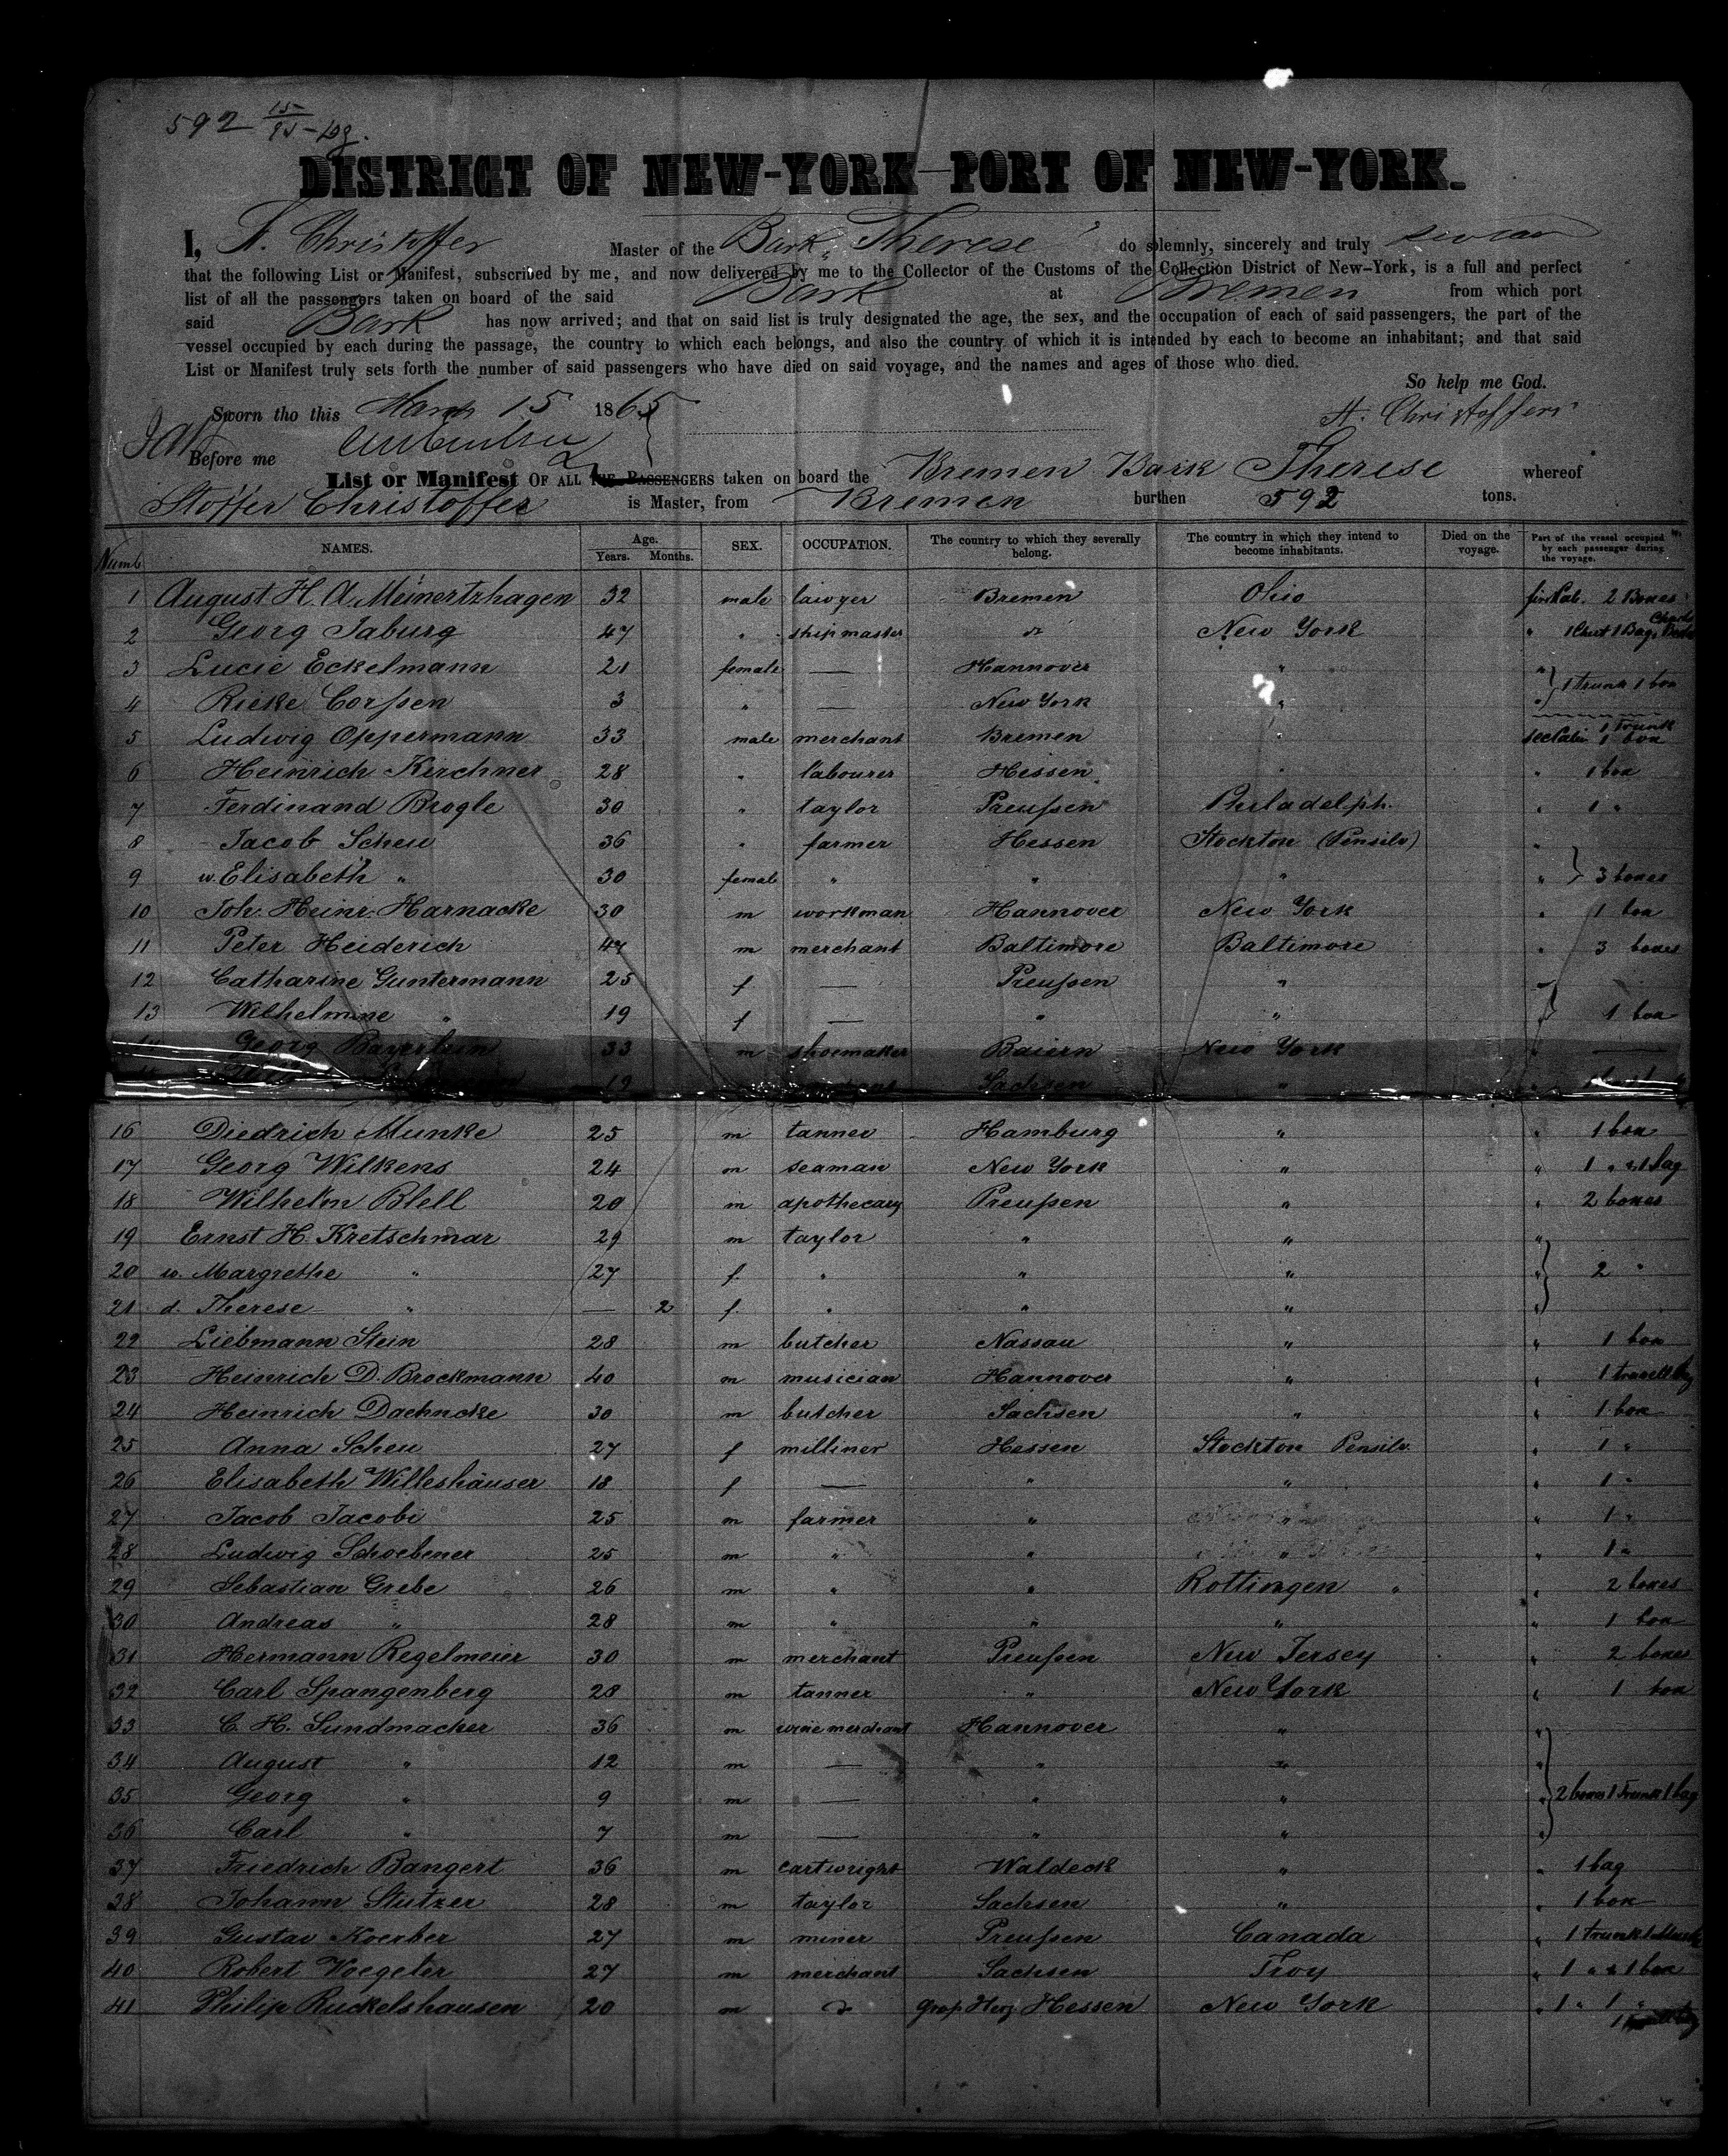 592 15/95
DISTRICT OF NEW-YORK—PORT OF NEW-YORK.
I, St. Christoffer Master of the Bark "Therese" do solemnly, sincerely and truly swear
that the following List or Manifest, subscribed by me, and now delivered by me to the Collector of the Customs of the Collection District of New-York, is a full and perfect
list of all the passengers taken on board of the said Bark at Bremen from which port
said Bark has now arrived; and that on said list is truly designated the age, the sex, and the occupation of each of said passengers, the part of the
vessel occupied by each during the passage, the country to which each belongs, and also the country of which it is intended by each to become an inhabitant; and that said
List or Manifest truly sets forth the number of said passengers who have died on said voyage, and the names and ages of those who died.
So help me God.
Sworn tho this March 15 1865 St. Christoffers
Before me
List or Manifest OF ALL THE PASSENGERS taken on board the Bremen Bark Therese whereof
Stoffer Christoffer is Master, from Bremen burthen 592 tons.
Numb NAMES. Age. Years. Months. SEX. OCCUPATION. The country to which they severally belong. The country in which they intend to become inhabitants. Died on the voyage. Part of the vessel occupied by each passenger during the voyage.
1 August H. A. Meinertzhagen 32 male lawyer Bremen Ohio first Cab. 2 Boxes
2 Georg Jaburg 47 " shipmaster do New York " 1 Chest 1 Bag
3 Lucie Eckelmann 21 female — Hannover " "
4 Rieke Corssen 3 " — New York " " 1 trunk 1 box
5 Ludwig Oppermann 33 male merchant Bremen " sec Cabin 1 trunk 1 box
6 Heinrich Kirchner 28 " labourer Hessen " " 1 box
7 Ferdinand Brogle 30 " taylor Preußen Philadelph. " 1 "
8 Jacob Scheu 36 " farmer Hessen Stockton (Pensilv) "
9 w. Elisabeth " 30 female " " " " 3 boxes
10 Joh. Heinr. Harnacke 30 m workman Hannover New York " 1 box
11 Peter Heiderich 47 m merchant Baltimore Baltimore " 3 boxes
12 Catharine Guntermann 25 f — Preußen " "
13 Wilhelmine " 19 f — " " " 1 box
14 Georg Bayerlein 33 m shoemaker Baiern New York " —
19 Sachsen "
16 Diedrich Munke 25 m tanner Hamburg " " 1 box
17 Georg Wilkens 24 m seaman New York " " 1 " & 1 bag
18 Wilhelm Blell 20 m apothecary Preußen " " 2 boxes
19 Ernst H. Kretschmar 29 m taylor " " "
20 w. Margrethe " 27 f. " " " " 2 "
21 d. Therese " — 2 f. " " " "
22 Liebmann Stein 28 m butcher Nassau " " 1 box
23 Heinrich D. Brockmann 40 m musician Hannover " " 1 travellbag
24 Heinrich Daehncke 30 m butcher Sachsen " " 1 box
25 Anna Scheu 27 f milliner Hessen Stockton Pensilv. " 1 "
26 Elisabeth Willeshäuser 18 f — " " " 1 "
27 Jacob Jacobi 25 m farmer " " " 1 "
28 Ludwig Schoebener 25 m " " " " 1 "
29 Sebastian Grebe 26 m " " Rottingen " " 2 boxes
30 Andreas " 28 m " " " " 1 box
31 Hermann Regelmeier 30 m merchant Preußen New Jersey " 2 boxes
32 Carl Spangenberg 28 m tanner " New York " 1 box
33 C. H. Sundmacher 36 m wine merchant Hannover " "
34 August " 12 m — " " "
35 Georg " 9 m — " " " 2 boxes 1 trunk 1 bag
36 Carl " 7 m — " " "
37 Friedrich Bangert 36 m cartwright Waldeck " " 1 bag
38 Johann Stutzer 28 m taylor Sachsen " " 1 box
39 Gustav Koerber 27 m miner Preußen Canada " 1 trunk
40 Robert Voegeler 27 m merchant Sachsen Troy " 1 " & 1 box
41 Philip Ruckelshausen 20 m do Groß Herz. Hessen New York " 1 " 1 "